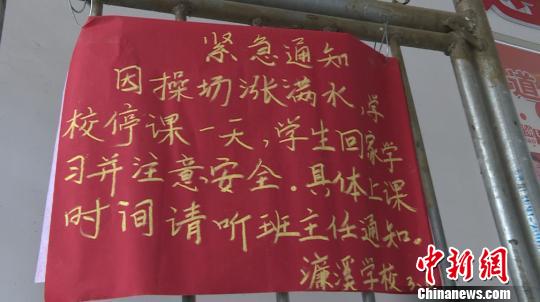 紧急通知
因操场涨满水,学
校停课一天,学生回家学
习并注意安全.具体上课
时间请听班主任通知.
濂溪学校
道
中新网
Chinanews.com